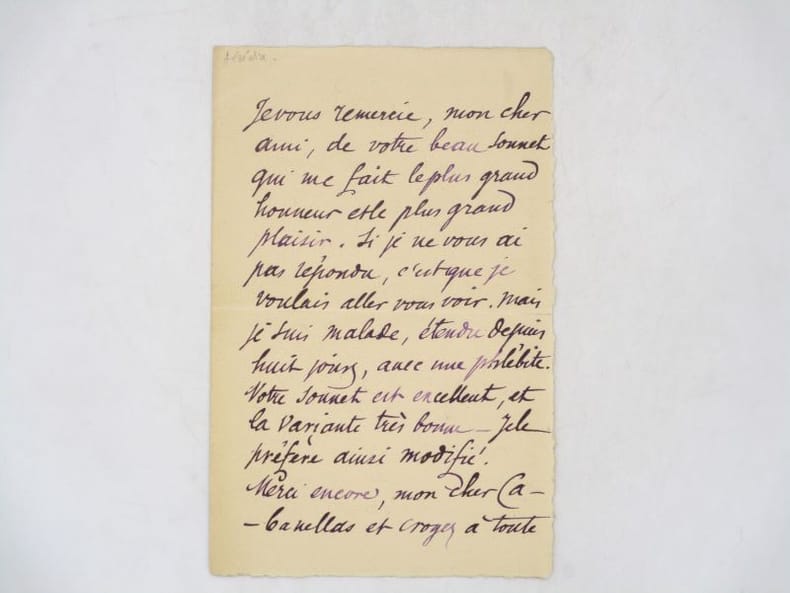 Heredia.
Je vous remercie, mon cher
ami, de votre beau sonnet
qui me fait le plus grand
honneur et le plus grand
plaisir. Si je ne vous ai
pas répondu, c'est que je
voulais aller vous voir. Mais
je suis malade, étendu depuis
huit jours, avec une phlébite.
Votre sonnet est excellent, et
la variante très bonne – Je le
préfère ainsi modifié.
Merci encore, mon cher Ca-
-banellas et croyez à toute